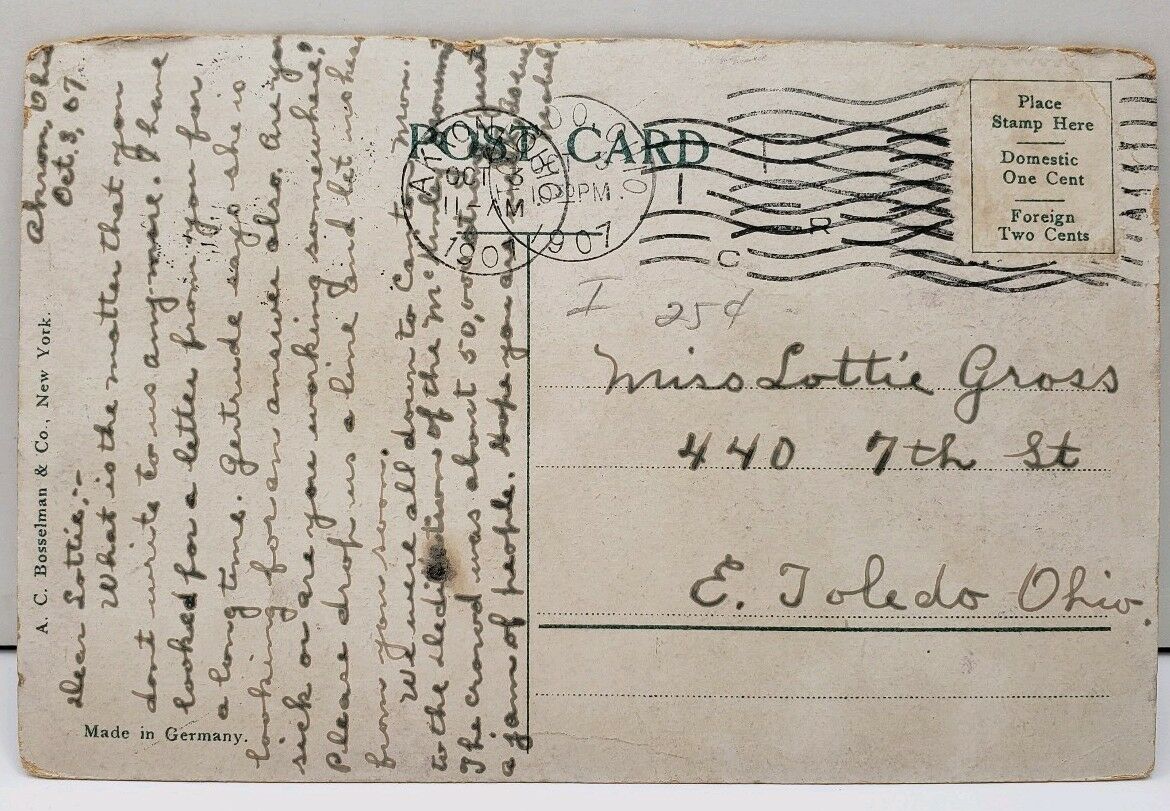 Akron, Ohi
Oct, 3, 07
Dear Lottie;-
What is the matter that you
dont write to us any-more. I have
looked for a letter from you for
a long time. Gertrude says she is
looking for an answer also. Are you
sick or are you working somewhere?
Please drop us a line and let us hear
from you soon.
We were all down to Canton Mon.
to the dedication of the McKinley
The crowd was about 50,000 just
a jam of people. Hope you are
A. C. Bosselman & Co., New York.
Made in Germany.
POST CARD
AKRON OHIO
OCT 3
11-AM
1907
TOLEDO, O
OCT 3
PM
1907
Place
Stamp Here
Domestic
One Cent
Foreign
Two Cents
I
R
C
I 25¢
Miss Lottie Gross
440 7th St
E. Toledo Ohio.